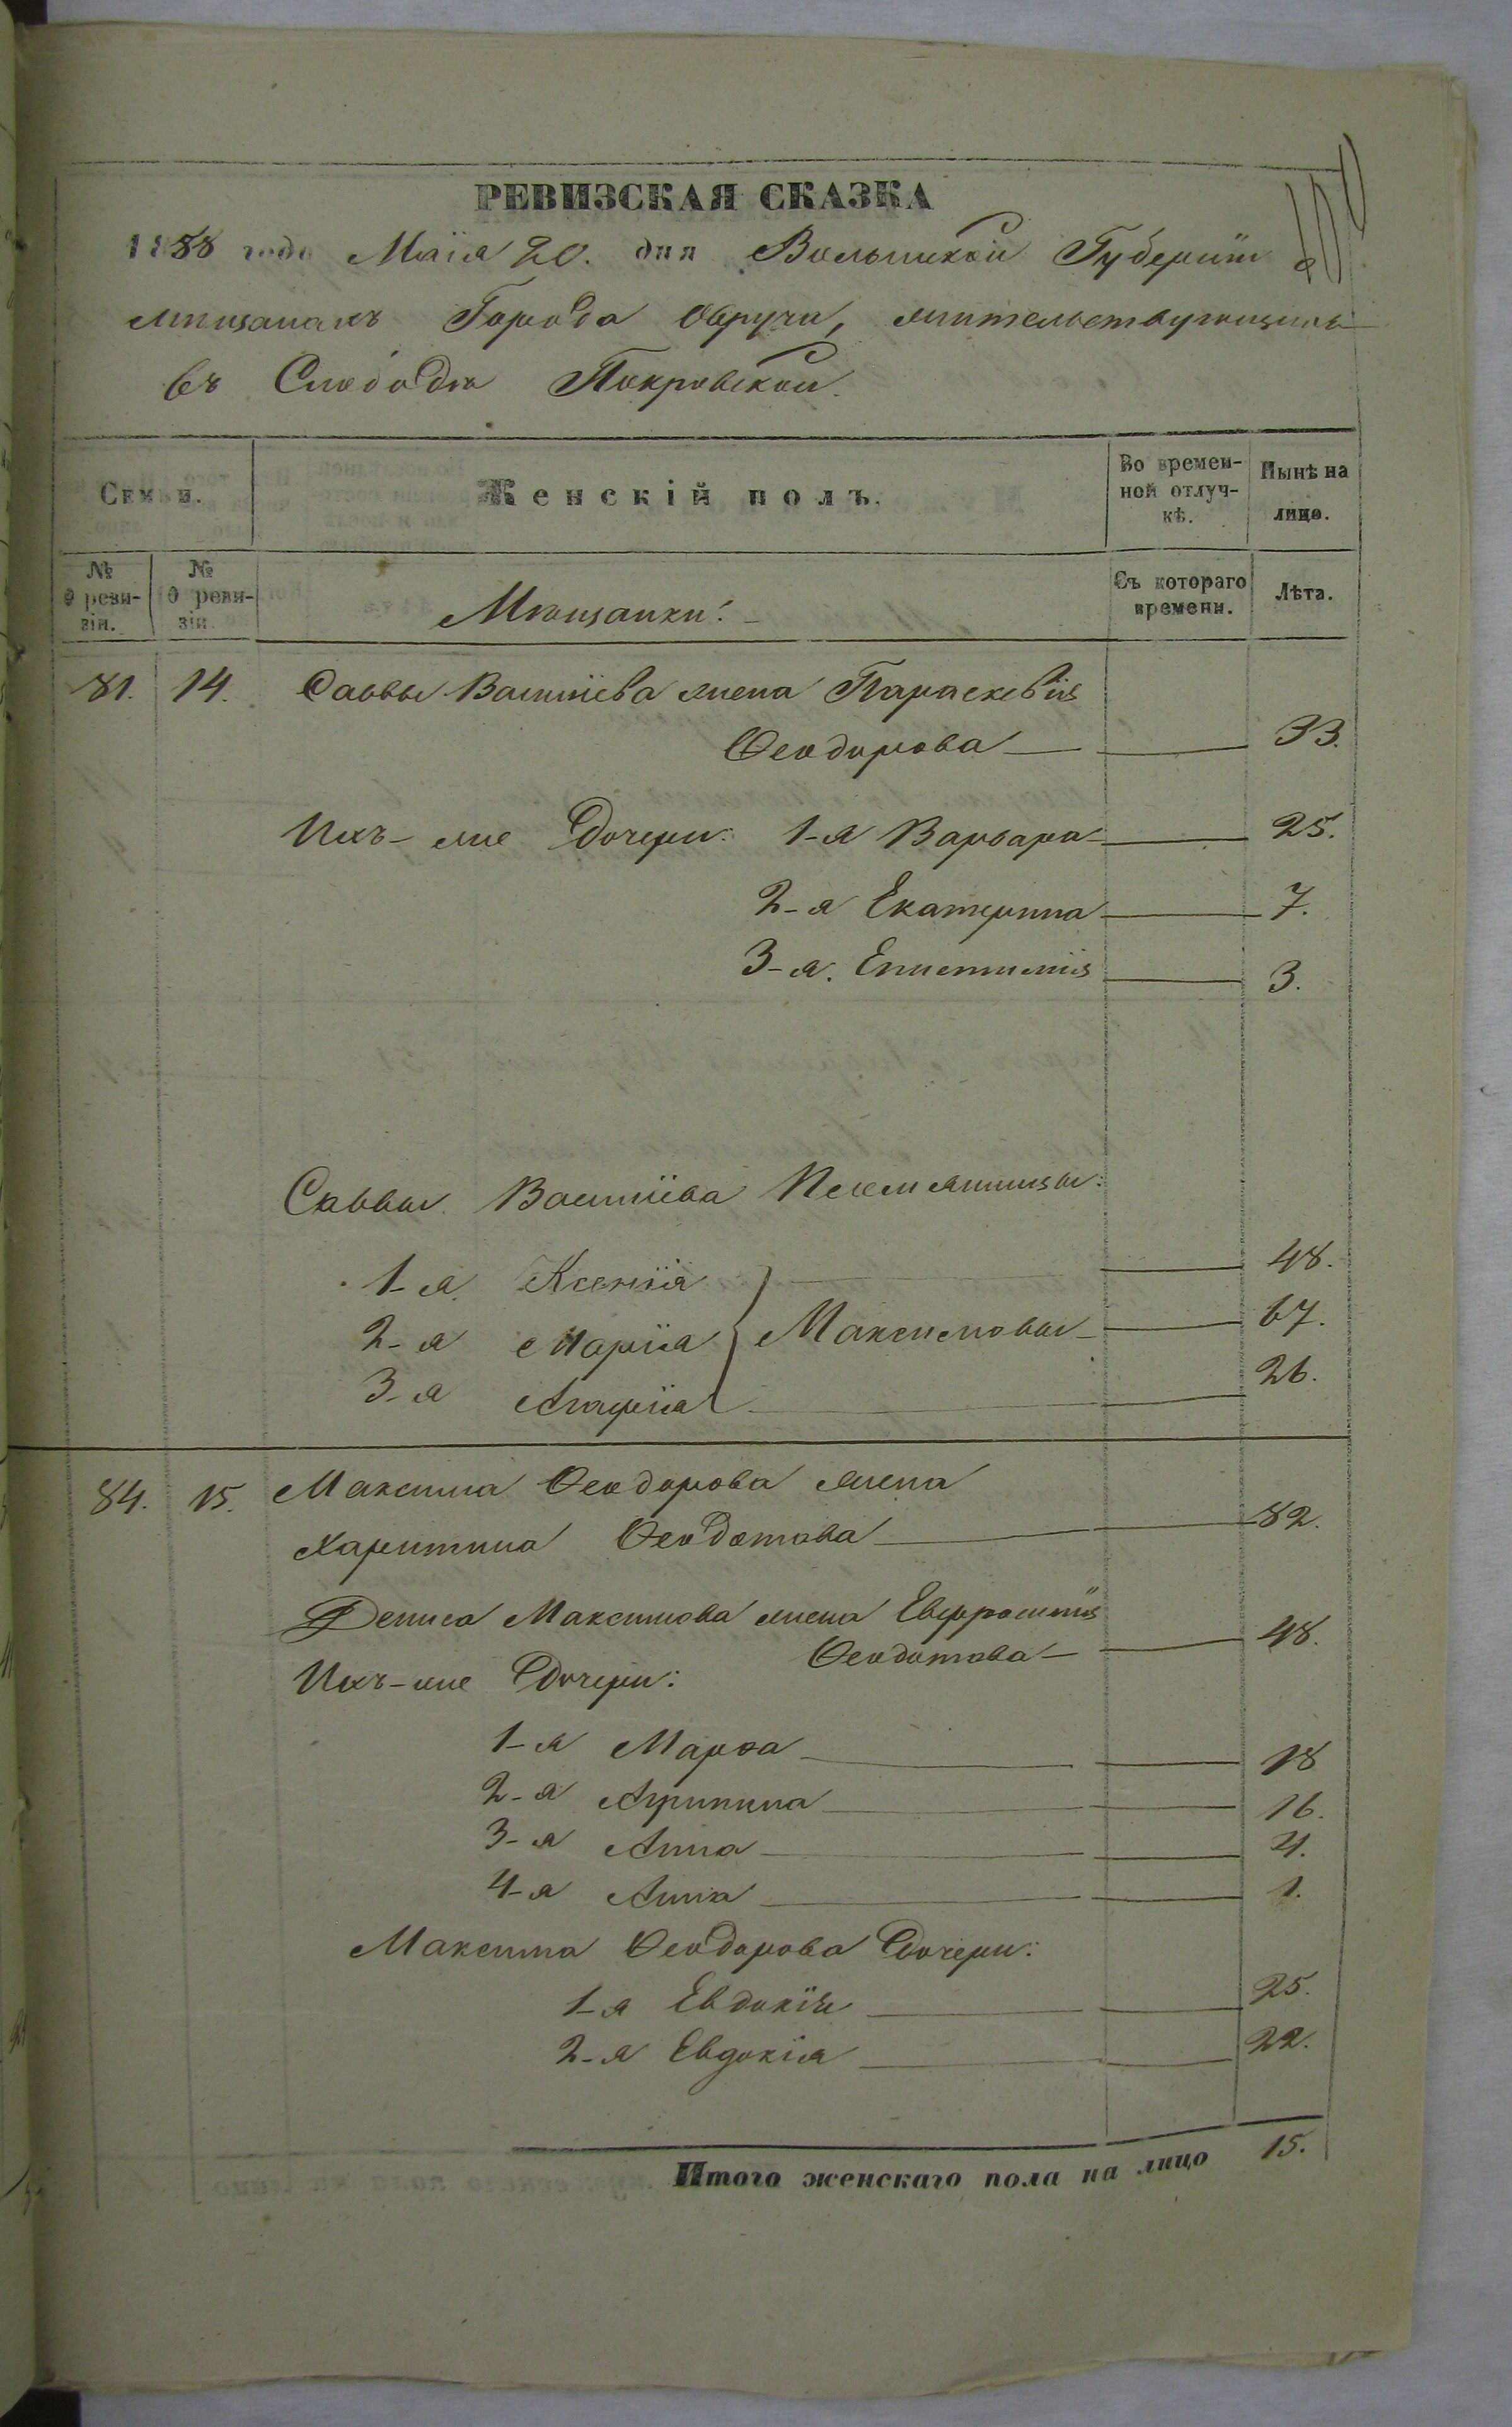 РЕВИЗСКАЯ СКАЗКА
1858 года Маія 20. дня Волынской Губерніи
мѣщанакъ Города Овруча, жительствующихъ
въ Слободѣ Покровской.
Семьи.
Женскій полъ.
Во времен-
ной отлуч-
кѣ.
Нынѣ на
лицо.
№
реви-
зіи.
№
реви-
зіи.
Мѣщанки:
Съ котораго
времени.
Лѣта.
81. 14. Саввы Василіева жена Параскевія
Ѳеодорова 33.
Ихъ-же Дочери: 1-я Варвара 25.
2-я Екатерина 7.
3-я. Епистимія 3.
Саввы Василіева Племянницы:
1-я Ксенія 48.
2-я Марія Максимовы 67.
3-я Агафія 26.
84. 15. Максима Ѳеодорова жена
Харитина Ѳеодотова 82.
Дениса Максимова жена Евфросинія
Ѳеодотова 48.
Ихъ-же Дочери:
1-я Марѳа 18
2-я Агрипина 16.
3-я Анна 4.
4-я Анна 1.
Максима Ѳеодорова Дочери:
1-я Евдокія 25.
2-я Евдокія 22.
Итого женскаго пола на лицо 15.